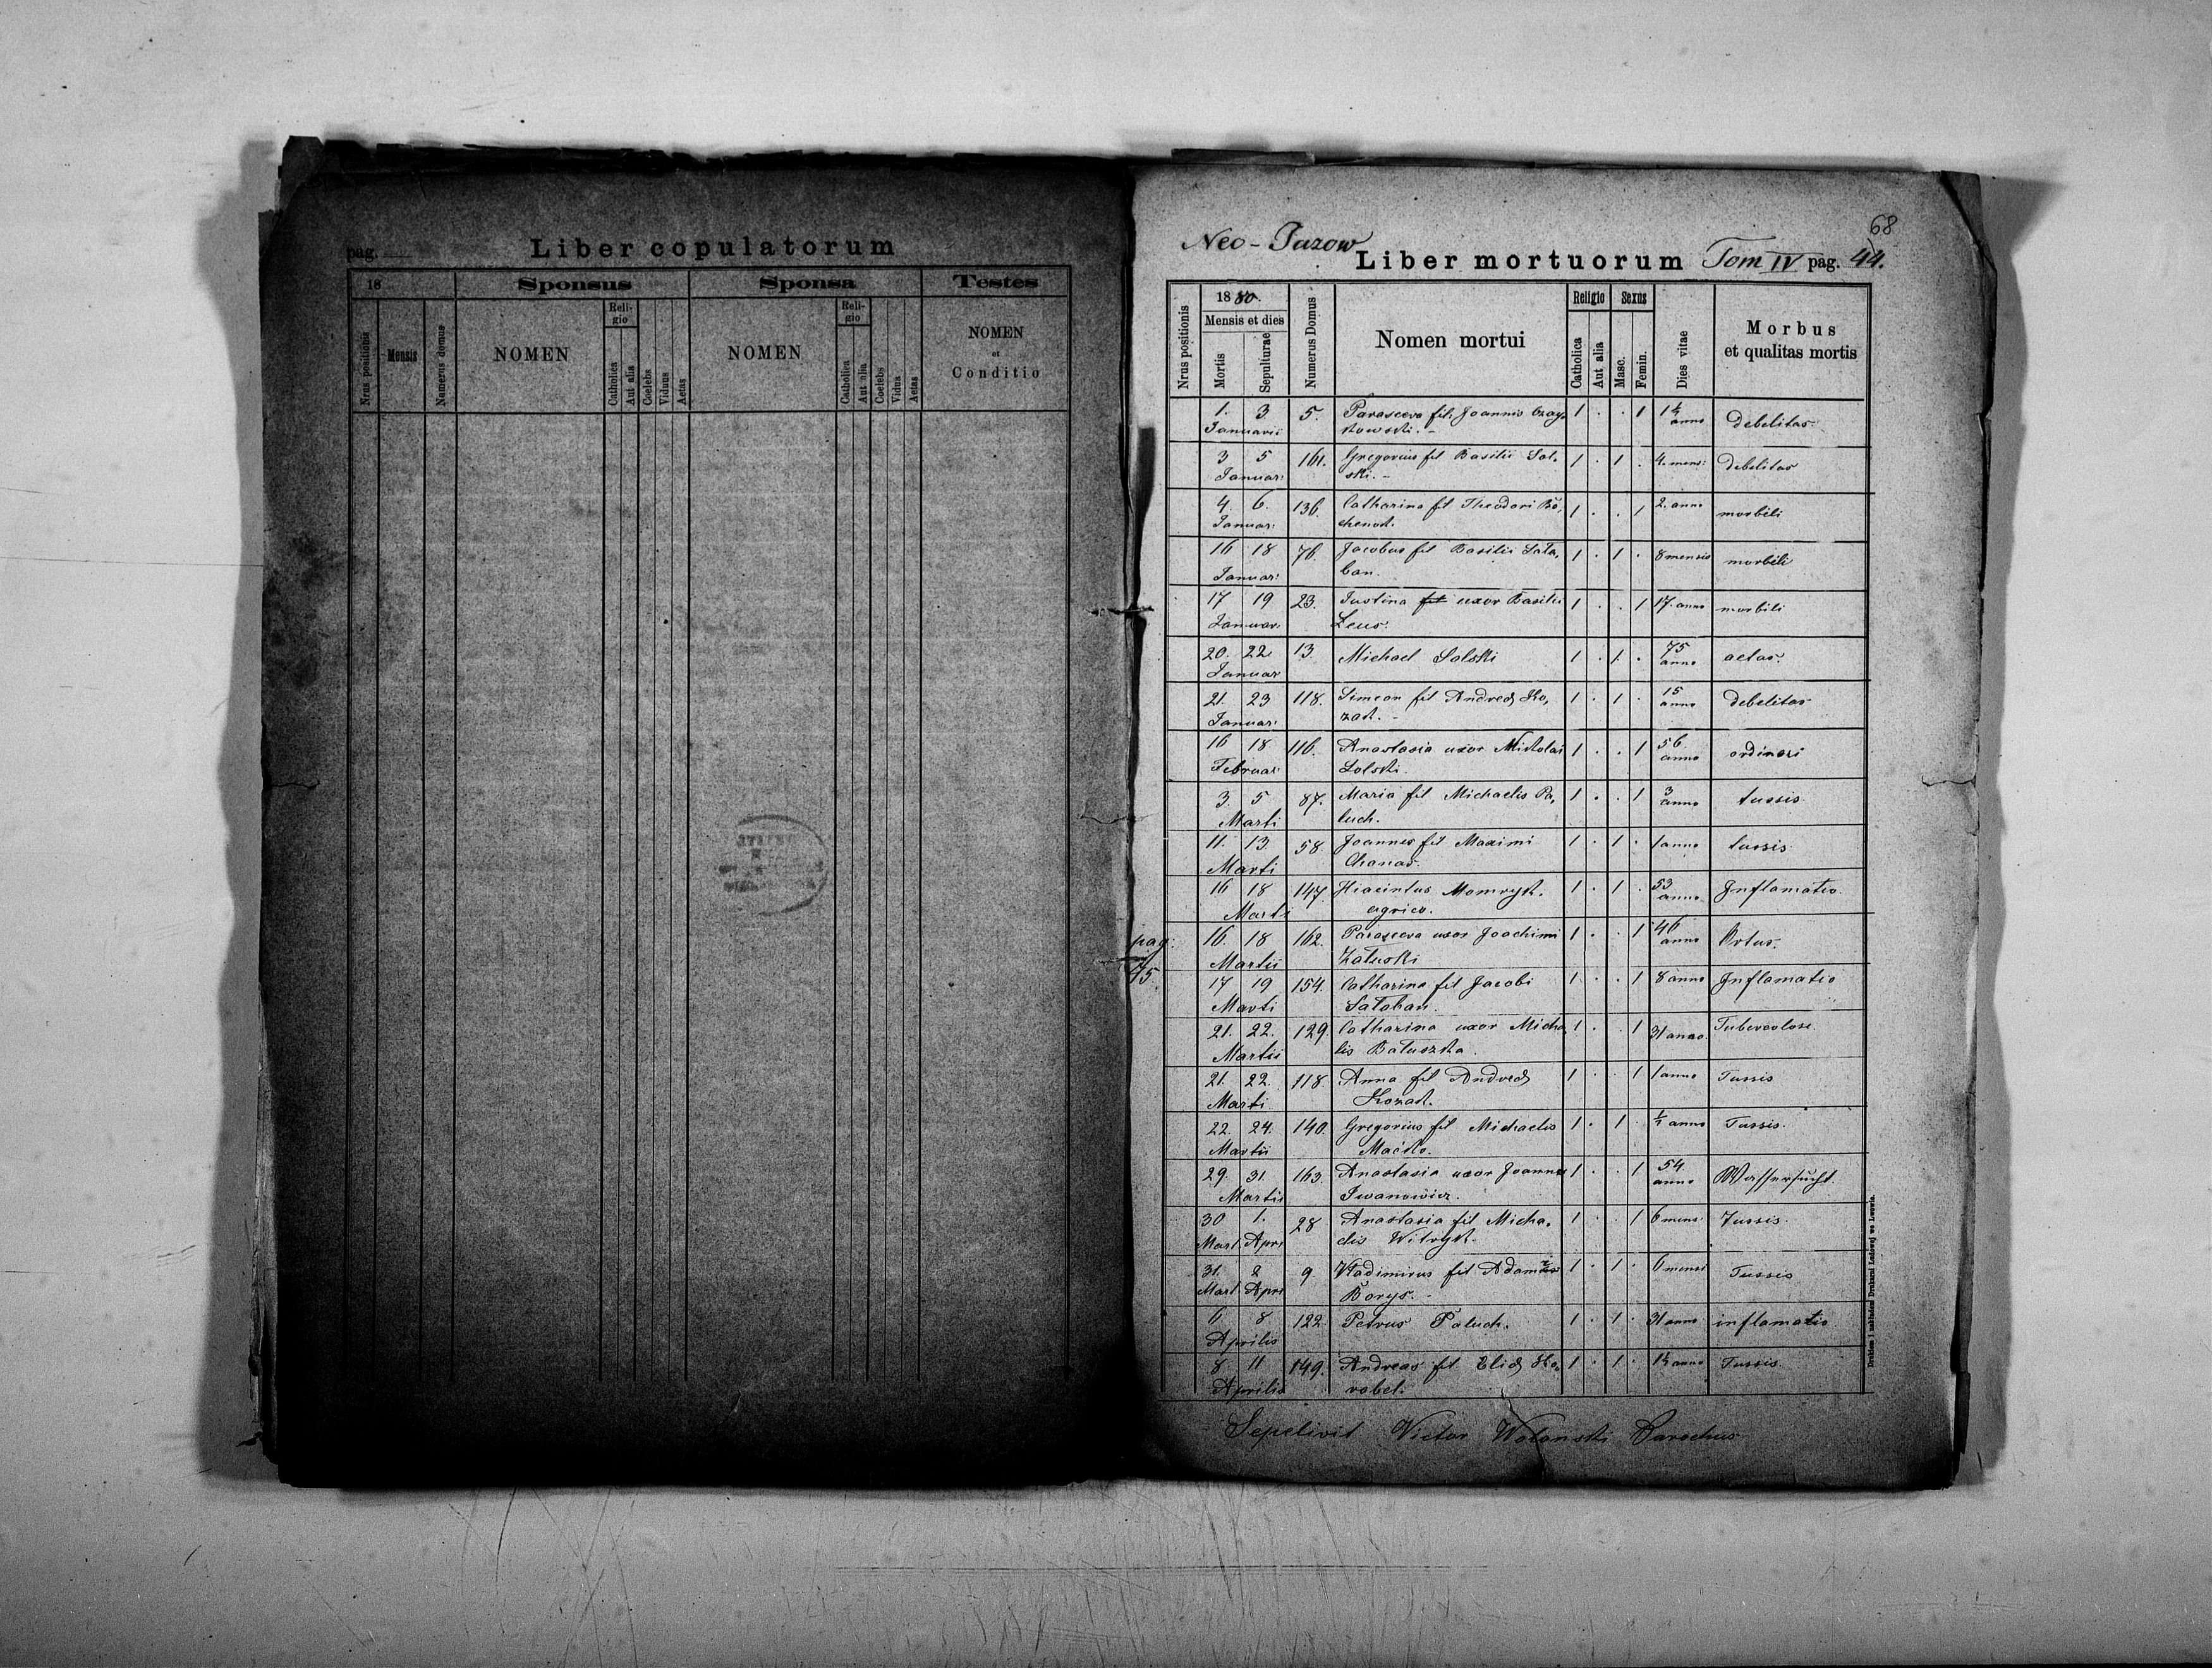 pag.
Liber copulatorum
18
Sponsus
Sponsa
Testes
Nrus positionis
Mensis
Numerus domus
NOMEN
Religio
Catholica
Aut alia
Coelebs
Viduus
Aetas
NOMEN
Religio
Catholica
Aut alia
Caelebs
Vidua
Aetas
NOMEN
et
Conditio
68
Neo-
Liber mortuorum Tom IV pag. 44.
Nrus positionis
1880.
Mensis et dies
Mortis
Sepulturae
Numerus Domus
Nomen mortui
Religio
Catholica
Aut alia
Sexus
Masc.
Femin.
Dies vitae
Morbus
et qualitas mortis
1. 3 5. Parasceva fil. Joannis 1 . . 1 1½ anno debelitas
Januarii
3 5 161. Gregorius fil Basilii Sol- 1 . 1 . 4. mens: debelitas
Januar: ski.-
4. 6. 136. Catharina fil Theodori 1 . . 1 2. anno morbili
Januar:
16 18 76. Jacobus fil Basilii Sała, 1 . 1 . 8 mensis morbili
Januar: ban.
17 19 23. Justina fil uxor Basilii 1 . . 1 17. anno morbili
Januar: Leus.
20. 22 13. Michael Solski 1 . 1 . 75 anno aetas.
Januar
21. 23 118. Simeon fil Andreä Ko, 1 . 1 . 15 anno debelitas
Januar: zak.-
16 18 116. Anastasia uxor Nikolai 1 . . 1 56 anno ordinari
Februar: Solski.
3. 5 87. Maria fil Michaelis Pa, 1 . . 1 3 anno tussis
Marti luch.
11. 13. 58. Joannes fil Maximi 1 . 1 . 1 anno tussis
Marti Chanas.
16 18 147. Hiacintus Momryk. 1 . 1 . 53 anno Inflamatio.
Marti agrico.
pag:
75.
16. 18 162. Parasceva uxor Joachimi 1 . . 1 46 anno Ortus.
Martii Załuski
17 19 154. Catharina fil Jacobi 1 . . 1 8 anno Inflamatio
Marti Sałaban.
21. 22. 129. Catharina uxor Micha 1 . . 1 31 anno. Tubercolose
Martii lis Bałuszka.
21. 22. 118. Anna fil Andreä 1 . . 1 1 anno Tussis
Marti Kozak.
22. 24. 140. Gregorius fil Michaelis 1 . 1 . anno Tussis.
Martii Maćko.
29. 31. 163. Anastasia uxor Joannes 1 . . 1 54. anno Wassersucht.
Martii Iwanowicz.
30 1. 28 Anastasia fil Micha, 1 . . 1 6 mens: Tussis.
Mart. Apri elis Witryk.
31. 2 9 Wladimirus fil 1 . 1 . 6 mens: Tussis
Mart Apri Borys.-
6 8 122. Petrus Paluch. 1 . 1 . 31 anno inflamatio
Aprilis
8 11 149. Andreas fil Eliä Ko, 1 . 1 . 1½ anno Tussis
Aprilis robel.
Sepelivit Victor Wołanski Parochus
Drukiem i nakładem Drukarni Ludowej we Lwowie.